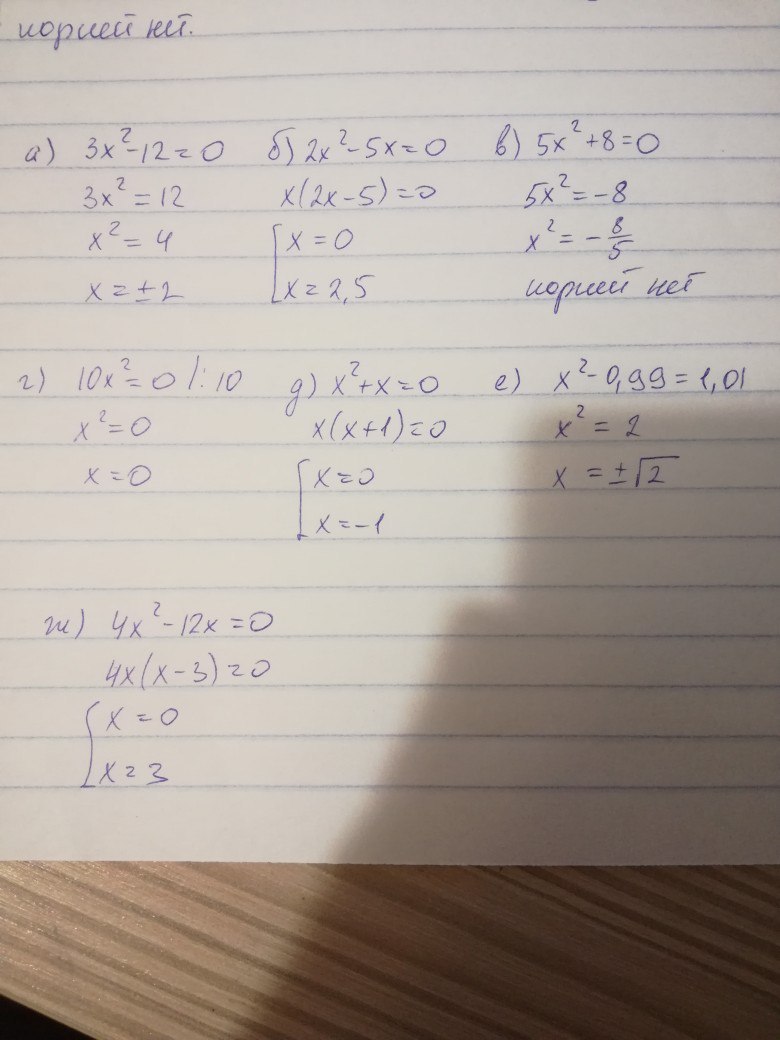 корней нет.
а) 3x²-12=0
3x²=12
x²=4
x=±2
б) 2x²-5x=0
x(2x-5)=0
[x=0
x=2,5
в) 5x²+8=0
5x²=-8
x²=-8/5
корней нет
г) 10x²=0 |:10
x²=0
x=0
д) x²+x=0
x(x+1)=0
[x=0
x=-1
е) x²-0,99=1,01
x²=2
x=±√2
ж) 4x²-12x=0
4x(x-3)=0
[x=0
x=3